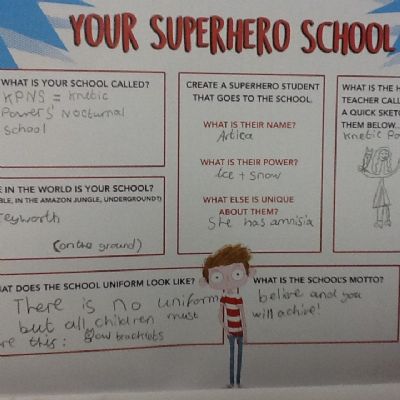 YOUR SUPERHERO SCHOOL
WHAT IS YOUR SCHOOL CALLED?
KPNS = knetic
Powers' Nocturnal
School
E IN THE WORLD IS YOUR SCHOOL?
BLE, IN THE AMAZON JUNGLE, UNDERGROUND?)
eyworth
(on the ground)
CREATE A SUPERHERO STUDENT
THAT GOES TO THE SCHOOL.
WHAT IS THEIR NAME?
Artica
WHAT IS THEIR POWER?
Ice + snow
WHAT ELSE IS UNIQUE
ABOUT THEM?
She has amnisia
WHAT IS THE H
TEACHER CALL
A QUICK SKETC
THEM BELOW...
knetic Po
HAT DOES THE SCHOOL UNIFORM LOOK LIKE?
There is no uniform
but all children must
re this: glow bracklets
WHAT IS THE SCHOOL'S MOTTO?
belive and you
will achive!